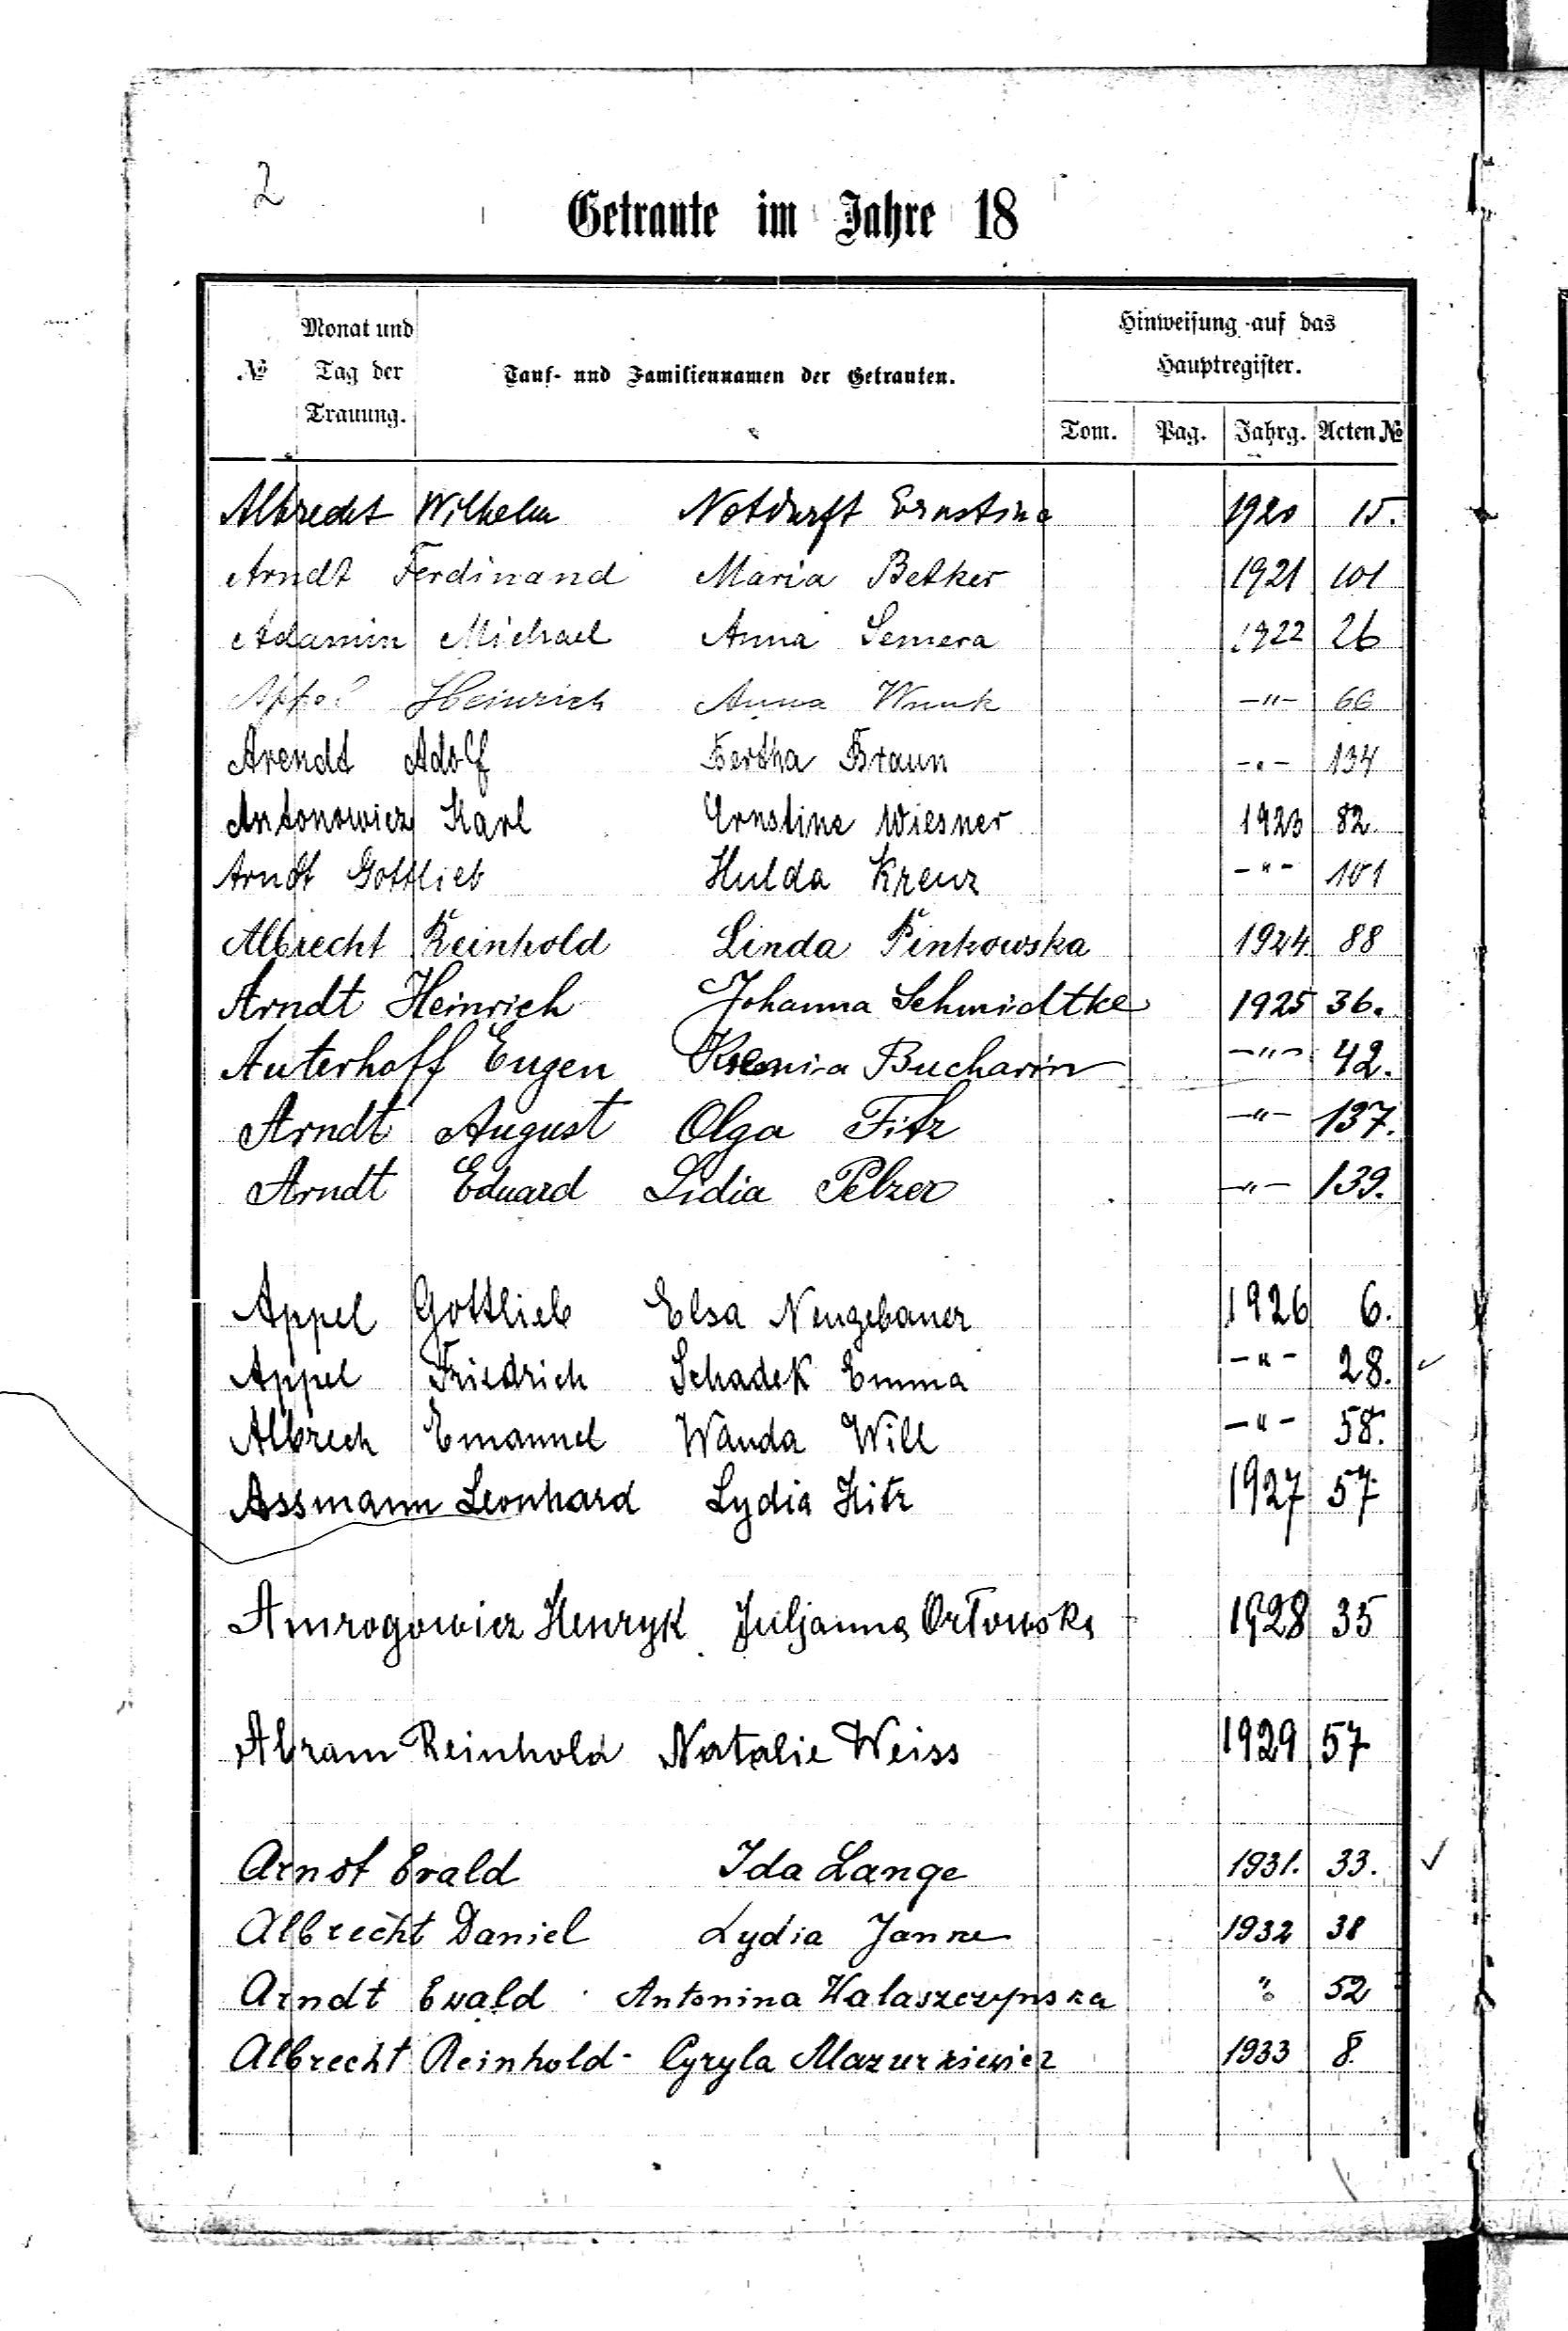 2
Getraute im Jahre 18
№ Monat und Tag der Trauung. Tauf- und Familiennamen der Getrauten. Hinweisung auf das Hauptregister.
Tom. Pag. Jahrg. Acten №
Albrecht Wilhelm Notdurft Ernstine 1920 15.
Arndt Ferdinand Maria Betker 1921 101
Adamin Michael Anna Semera 1922 26
Heinrich Anna Wunk -"- 66
Arendt Adolf Bertha Braun -"- 134
Antonowicz Karl Ernstine Wiesner 1923 82.
Arndt Gottlieb Hulda Kreuz -"- 101
Albrecht Reinhold Linda Pinkowska 1924. 88
Arndt Heinrich Johanna Schmidtke 1925 36.
Auterhoff Eugen Bucharin -"- 42.
Arndt August Olga Fitz -"- 137.
Arndt Eduard Lidia Pelzer -"- 139.
Appel Gottlieb Elsa Neugebauer 1926 6.
Appel Friedrich Schadek Emma -"- 28.
Albrech Emanuel Wanda Will -"- 58.
Assmann Leonhard Lydia Hitz 1927 57
Amrogowicz Henryk Juljanna Orłowska 1928 35
Abram Reinhold Natalie Weiss 1929 57
Arndt Evald Ida Lange 1931. 33.
Albrecht Daniel Lydia Janke 1932 38
Arndt Ewald Antonina Walaszczynska " 52
Albrecht Reinhold - Cyryla Mazurkiewicz 1933 8.